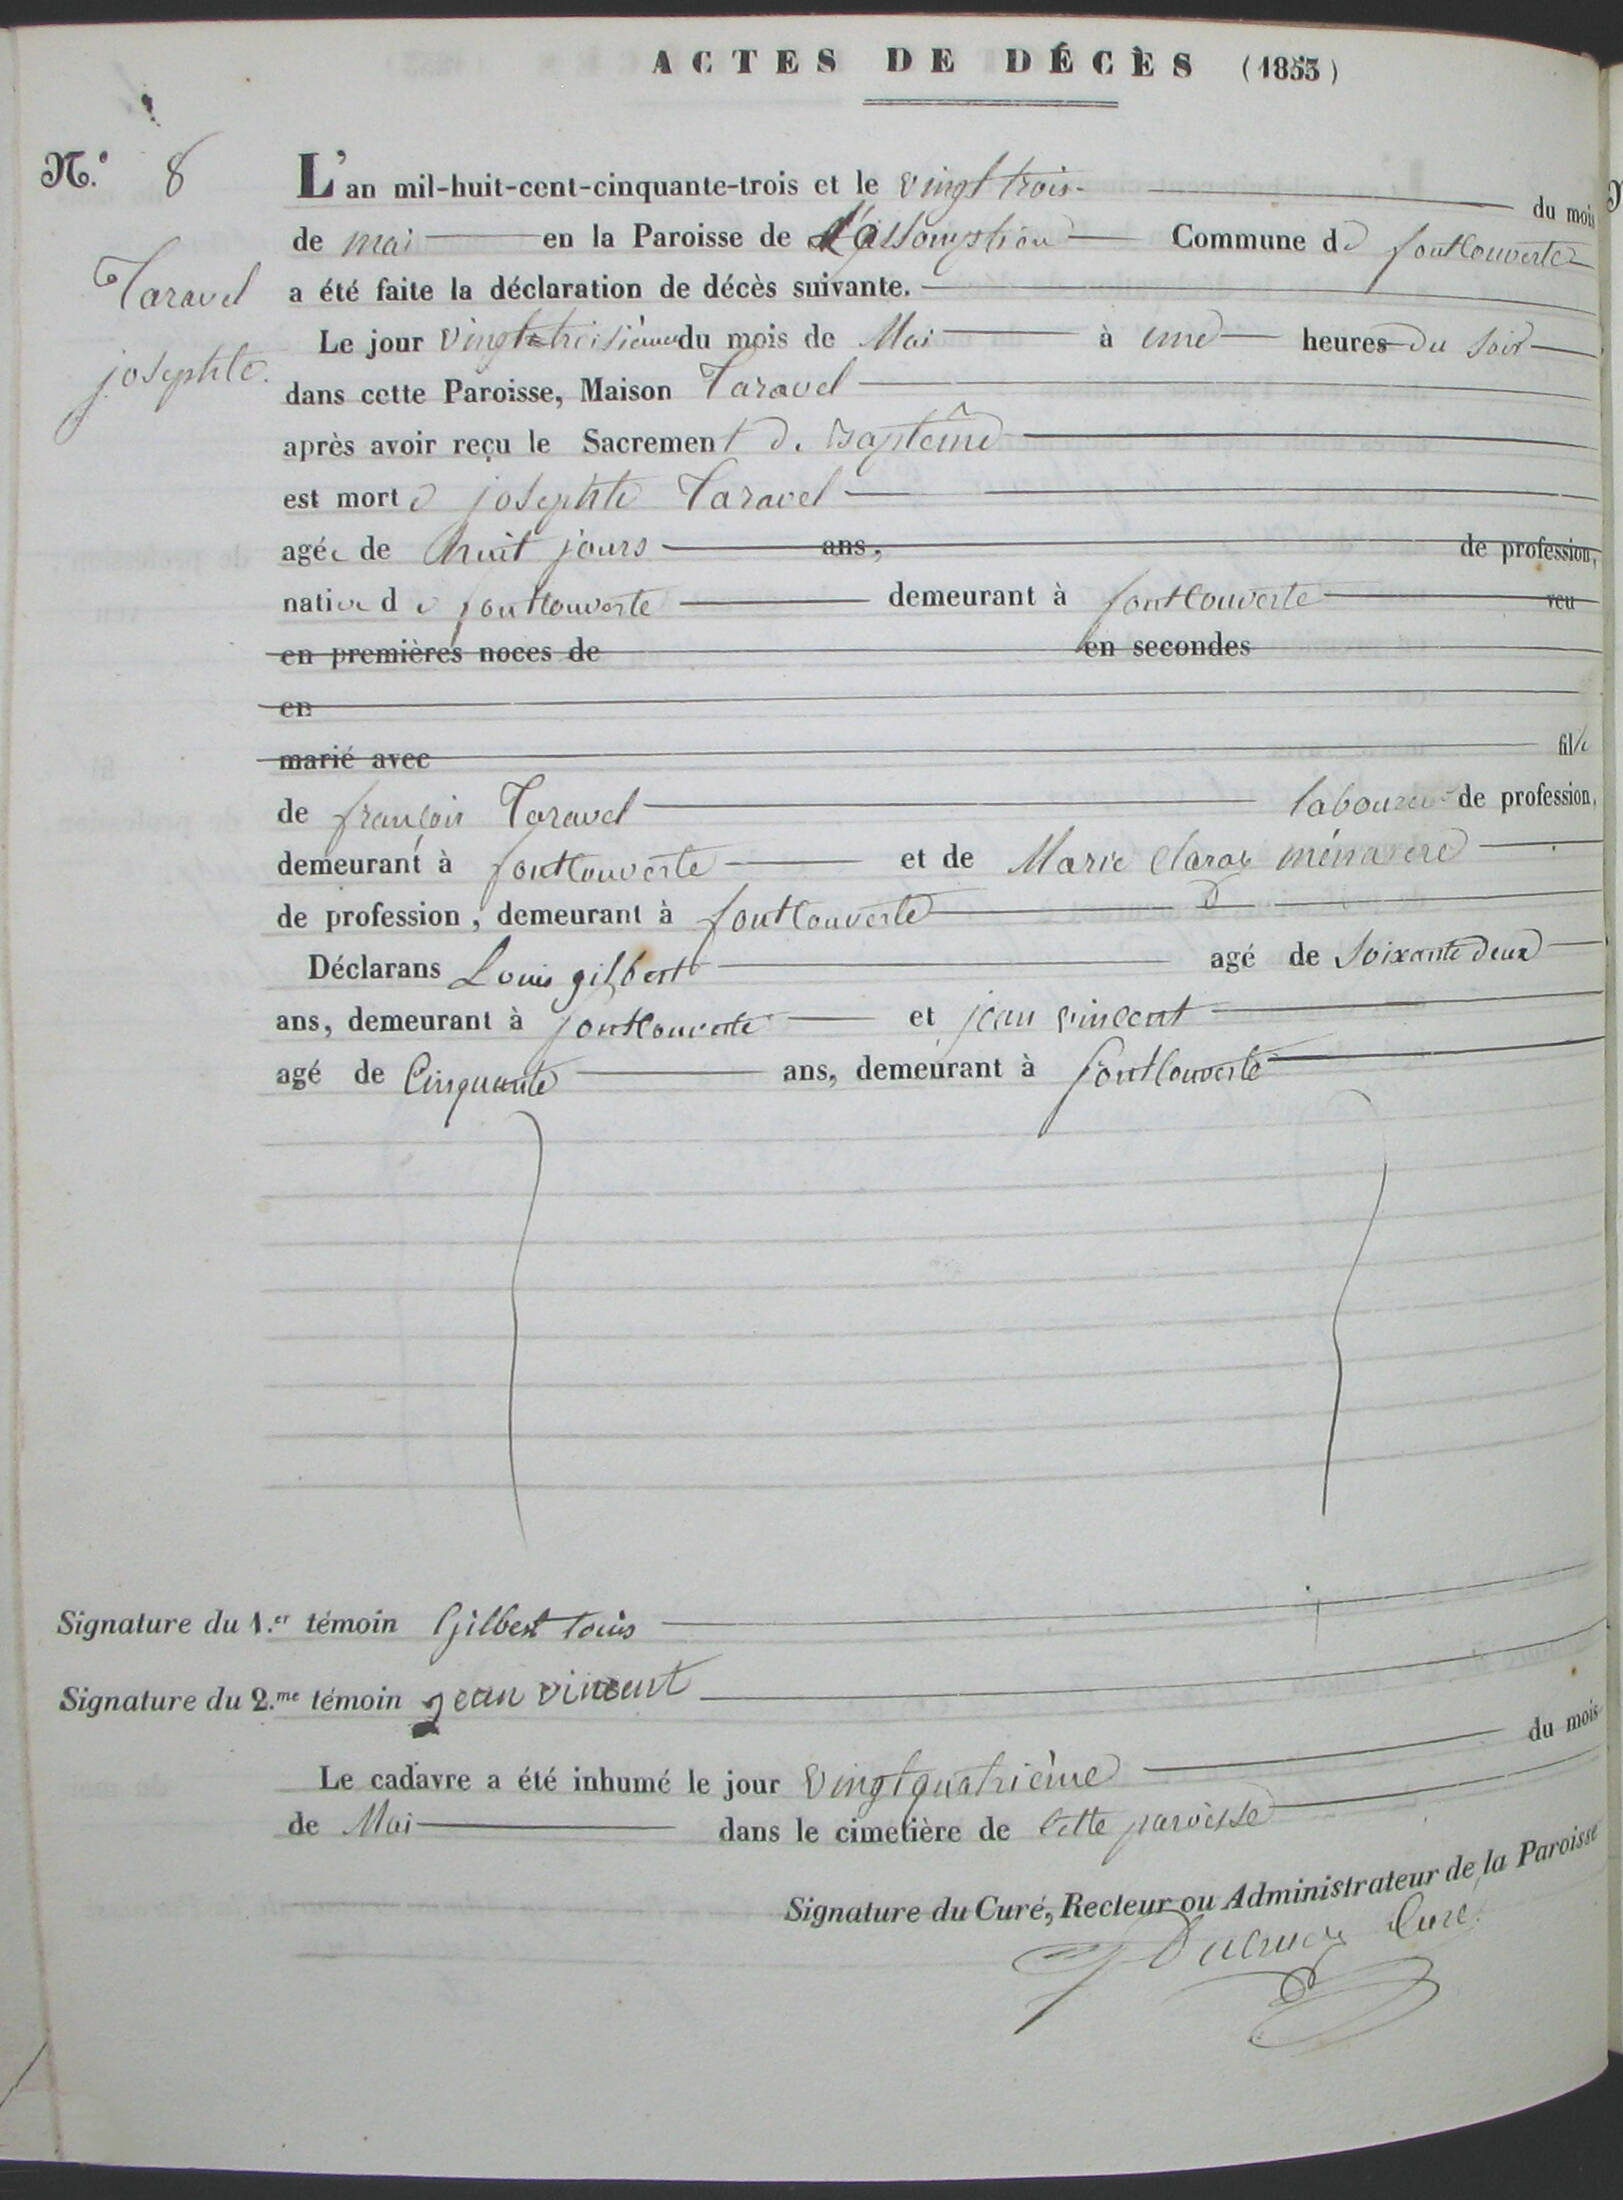 ACTES DE DÉCÈS (1853)
N.° 8
L'an mil-huit-cent-cinquante-trois et le vingt trois du mois
de mai en la Paroisse de L'assomption Commune de fontcouverte
Taravel
a été faite la déclaration de décès suivante.
Le jour vingt-troisième du mois de Mai à une heures du soir
josephte.
dans cette Paroisse, Maison Taravel
après avoir reçu le Sacrement de Baptême
est morte josephte Taravel
agée de huit jours ans, de profession,
native de fontcouverte demeurant à fontcouverte veu
en premières noces de en secondes
en
marié avec fille
de françois Taravel laboureur de profession,
demeurant à fontcouverte et de Marie Claraz ménagère
de profession, demeurant à fontcouverte
Déclarans Louis gilbert agé de soixante deux
ans, demeurant à fontcouverte et jean vincent
agé de Cinquante ans, demeurant à fontcouverte
Signature du 1.er témoin Gilbert Louis
Signature du 2.me témoin jean vincent
Le cadavre a été inhumé le jour vingt quatrième du mois
de Mai dans le cimetière de cette paroisse
Signature du Curé, Recteur ou Administrateur de la Paroisse
Curé